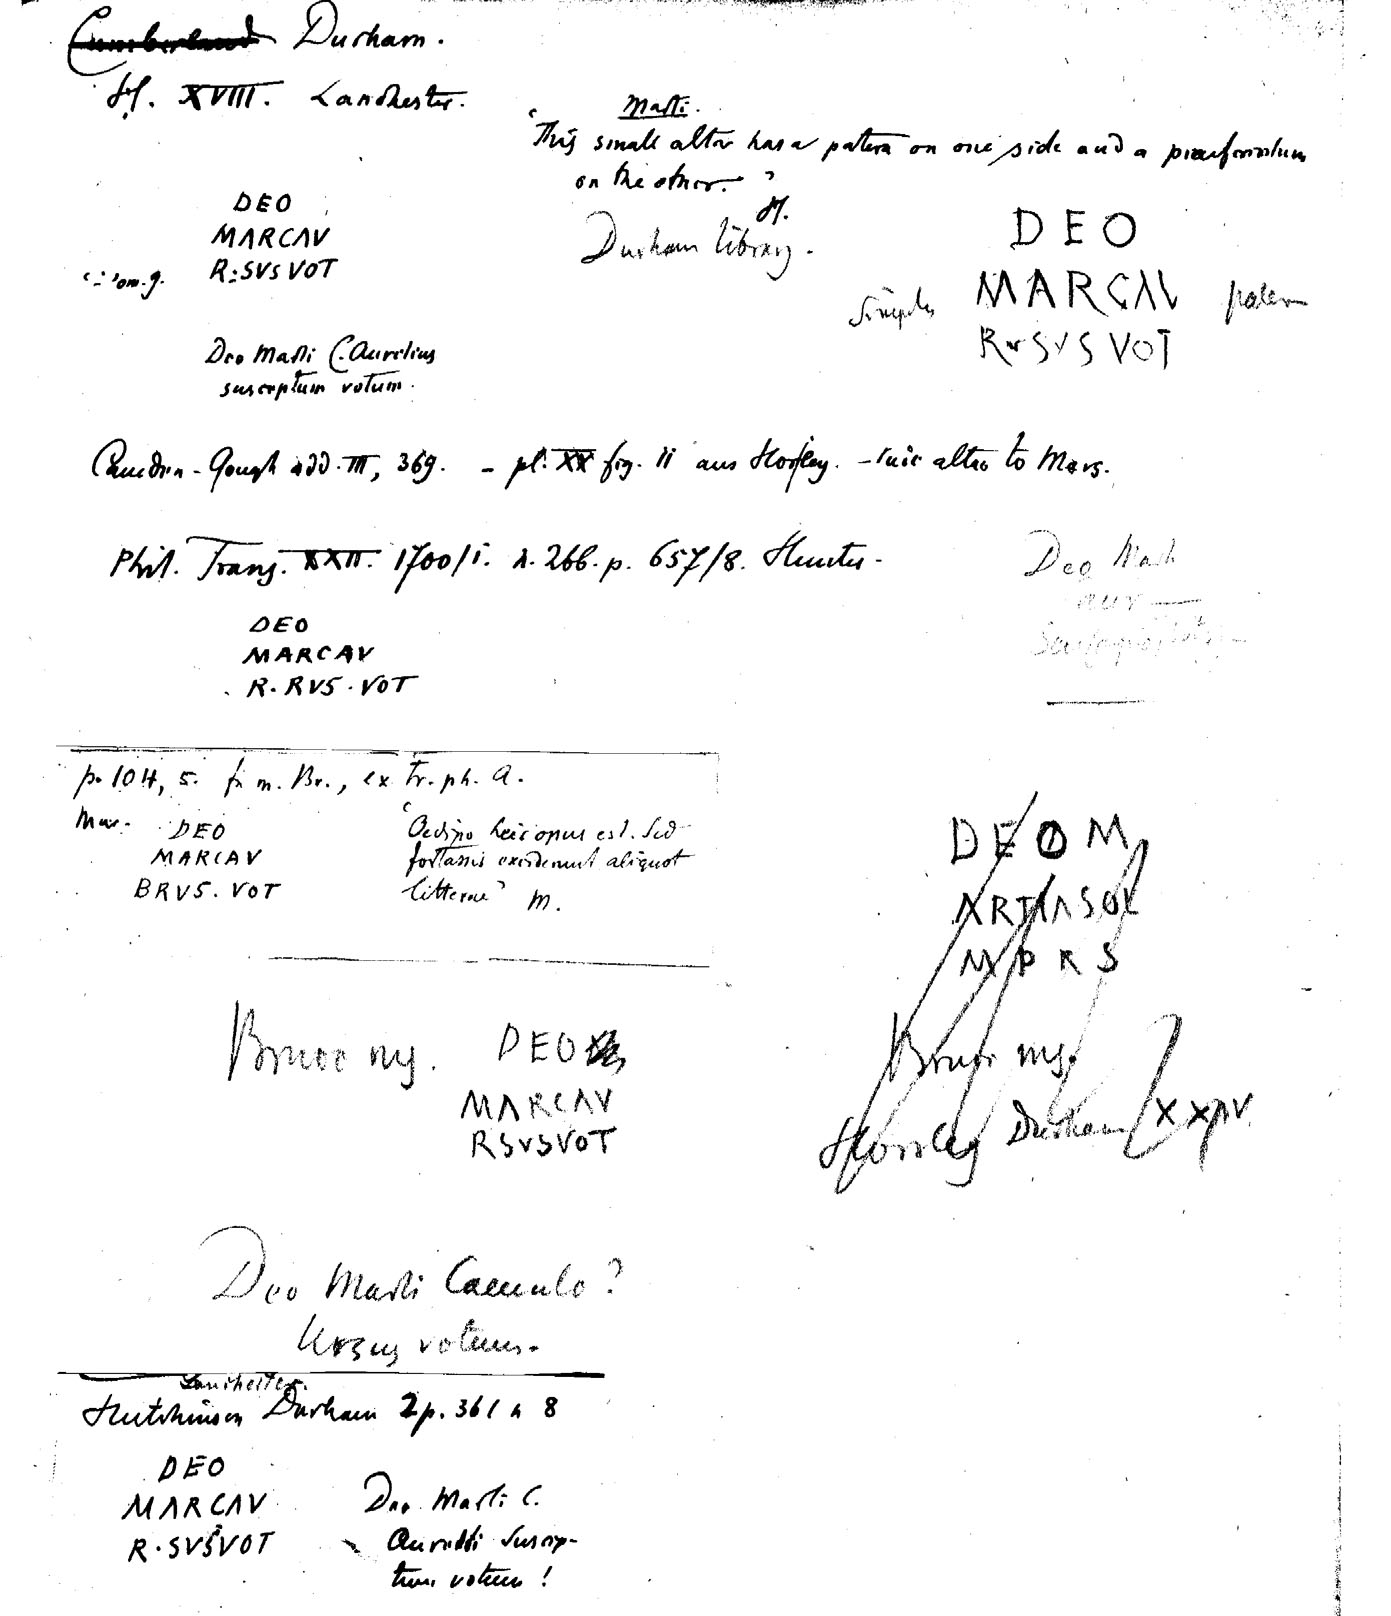 Cumberland Durham.
H. XVIII. Lanchester.
Marti.
'This small altar has a patera on one side and a praefericulum
on the other.'
H.
DEO
MARCAV
R:SVSVOT
':' om. g.
Durham library.
DEO
MARCAV
R SVS VOT
patera
Deo Marti C. Aurelius
susceptum votum.
Camden-Gough add. III, 369. - pl. XX fig. 11 aus Horsley. - altar to Mars.
Phil. Trans. XXII. 1700/1. n. 266. p. 657/8. Hunter.
DEO
MARCAV
R. RVS. VOT
Deo Marti
aur
p. 104, 5. fr m. Br., ex tr. ph. A.
Mur.
DEO
MARCAV
BRVS. VOT
'Oedipo heic opus est. Sed
fortassis exciderunt aliquot
litterae' M.
DEO M
ARTI
M P R S
Bruce ms.
Horsley Durham XXIV.
Bruce ms.
DEO
MARCAV
RSVSVOT
Deo Marti Camulo?
Ursus votum.
Lanchester.
Hutchinson Durham 2 p. 361 n 8
DEO
MARCAV
R. SVSVOT
Deo Marti C.
Aurelii suscep-
tum votum!